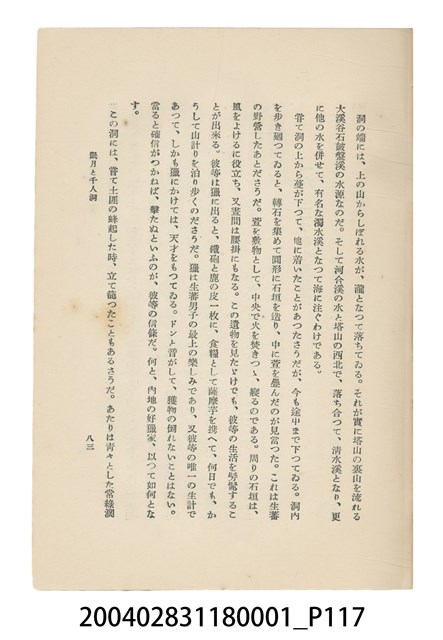 洞の端には、上の山からしぼれる水が、瀧となつて落ちてゐる。それが實に塔山の裏山を流れる
大溪谷石鼓盤溪の水源なのだ。そして河合溪の水と塔山の西北で、落ち合つて、淸水溪となり、更
に他の水を併せて、有名な濁水溪となつて海に注ぐわけである。
嘗て洞の上から蔓が下つて、地に着いたことがあつたさうだが、今も途中まで下つてゐる。洞内
を步き廻つてゐると、轉石を集めて圓形に石垣を造り、中に萱を疊んだのが見當つた。これは生蕃
の野營したあとださうだ。萱を敷物として、中央で火を焚きつゝ、寢るのである。周りの石垣は、
風をよけるに役立ち、又晝間は腰掛にもなる。この遺物を見たゞけでも、彼等の生活を髣髴するこ
とが出來る。彼等は獵に出ると、鐵砲と鹿の皮一枚に、食糧として薩摩芋を携へて、何日でも、か
うして山許りを泊り步くのださうだ。獵は生蕃男子の最上の樂しみであり、又彼等の唯一の生計で
あつて、しかも獵にかけては、天才をもつてゐる。ドンと音がして、獲物の倒れないことはない。
當ると確信がつかねば、擊たぬといふのが、彼等の信條だ。何と、內地の好獵家、以つて如何とな
す。
この洞には、嘗て土匪の蜂起した時、立て籠つたこともあるさうだ。あたりは靑々とした常綠濶
月と千人洞
八三
200402831180001_P117